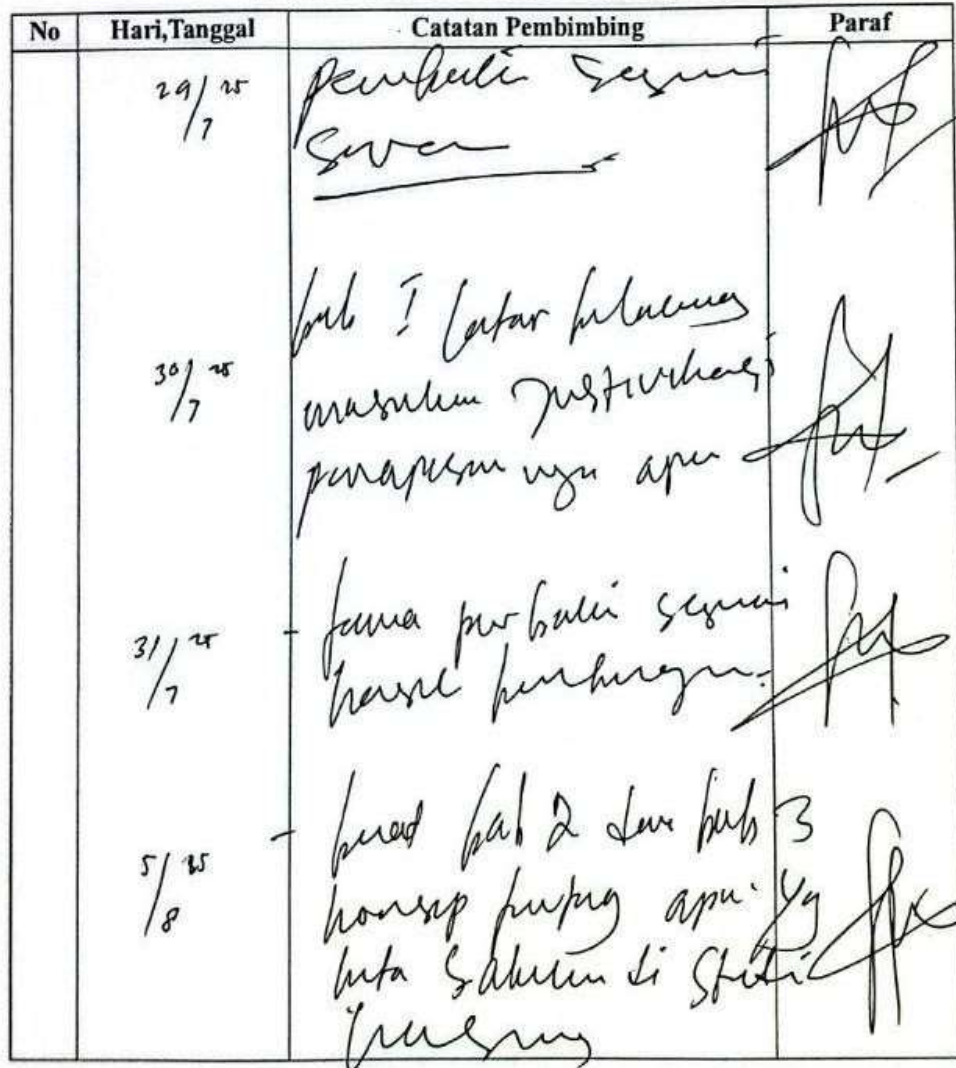 No Hari,Tanggal Catatan Pembimbing Paraf
29/7 25 perbaiki sesuai
saran
30/7 25 bab I latar belakang
masukan justivikasi
penapisan nya apa
31/7 25 - perbaiki sesuai
hasil
5/8 25 - buat bab 2 dan bab 3
konsep apa yg
kita lakukan di studi